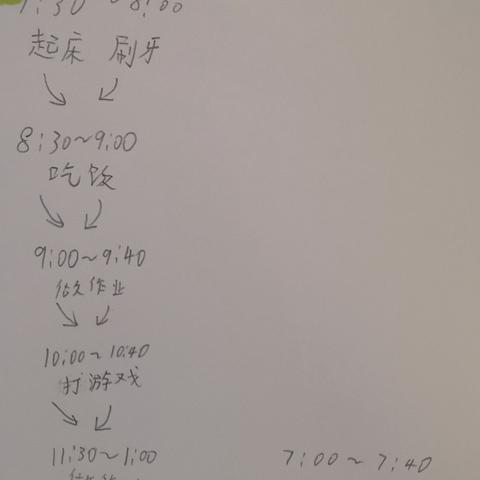 7:30 ~ 8:00
起床 刷牙
8:30~9:00
吃饭
9:00~9:40
做作业
10:00~10:40
打游戏
11:30~1:00
7:00~7:40